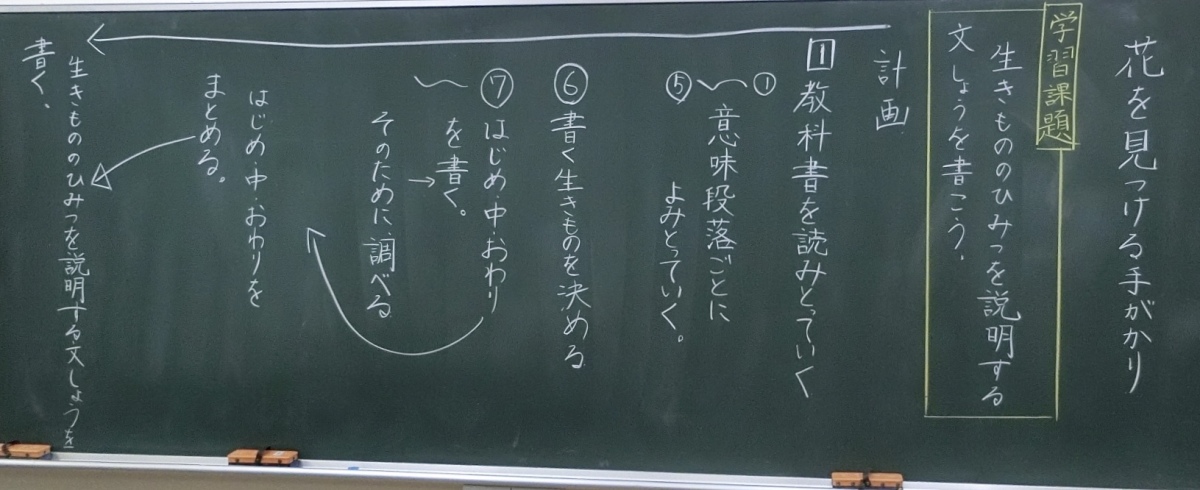 花を見つける手がかり
学習課題
生きもののひみつを説明する
文しょうを書こう、
計画
1 教科書を読みとっていく
①〜⑤
意味段落ごとに
よみとっていく。
⑥書く生きものを決める
⑦はじめ・中・おわり
〜
を書く。
→
そのために、調べる
はじめ・中・おわりを
まとめる。
生きもののひみつを説明する文しょうを
書く、